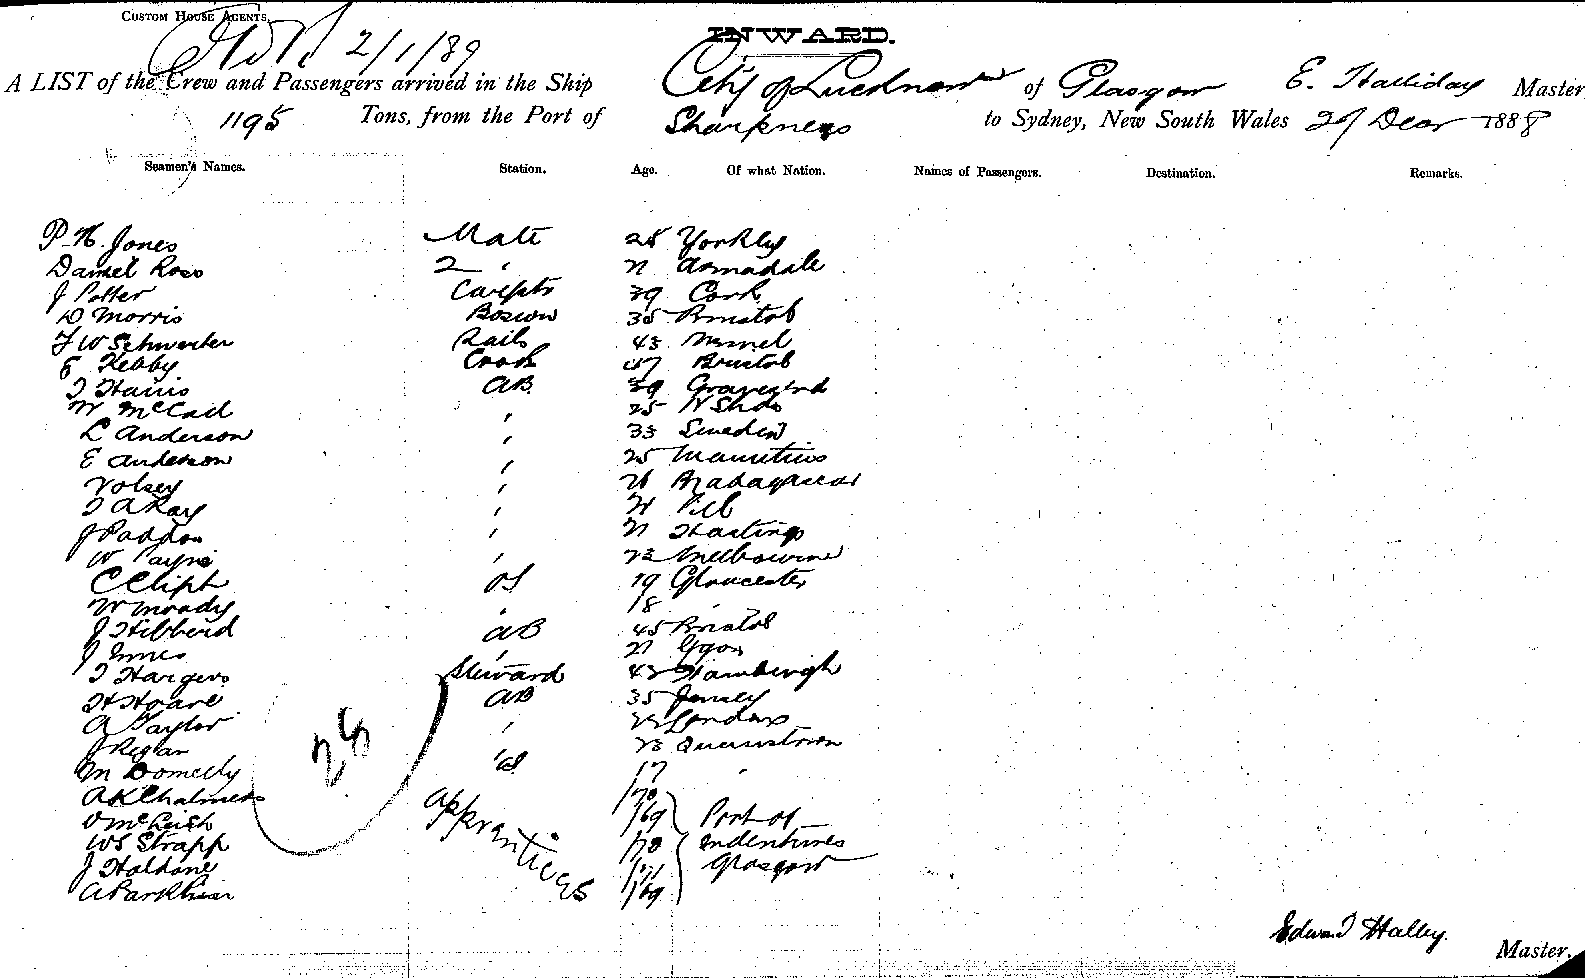 CUSTOM HOUSE AGENTS.
2/1/89
INWARD.
A LIST of the Crew and Passengers arrived in the Ship City of Lucknow of Glasgow E. Halliday Master
1195 Tons, from the Port of Sharpness to Sydney, New South Wales 29 Decr 1888
Seamen's Names. Station. Age. Of what Nation. Names of Passengers. Destination. Remarks.
P. H. Jones Mate 28
Daniel Ross 2 " 21 Armadale
J Potter Carptr 39 Cork
D Morris Boswn 35 Bristol
F W Schwerter Sails 43 Memel
E Kebby Cook Bristol
T Harris AB. 39 Gravesend
W McCail " 25 N Shds
L Anderson " 33 Sweden
E Anderson " 25 Mauritius
Volsey " 26 Madagascar
T A Ray " 21 Pill
J Paddon " 21 Hastings
W Payne " 23 Melbourne
C Clipt OS 19 Gloucester
W Moody " 18 "
J Hibberd AB 45 Bristol
J Innes " 21
T Hargers Steward 42 Hamburgh
H Hoare AB 35 Jersey
A Taylor " London
J Regan " 23 Queenstown
M Donnelly OS 17 "
A K Chalmers /70
D McLeish /69 Port of
W S Strapp Apprentices /70 Indentures
J Haldane /71 Glasgow
A Parkhier /69
28
Edward Halley.
Master.